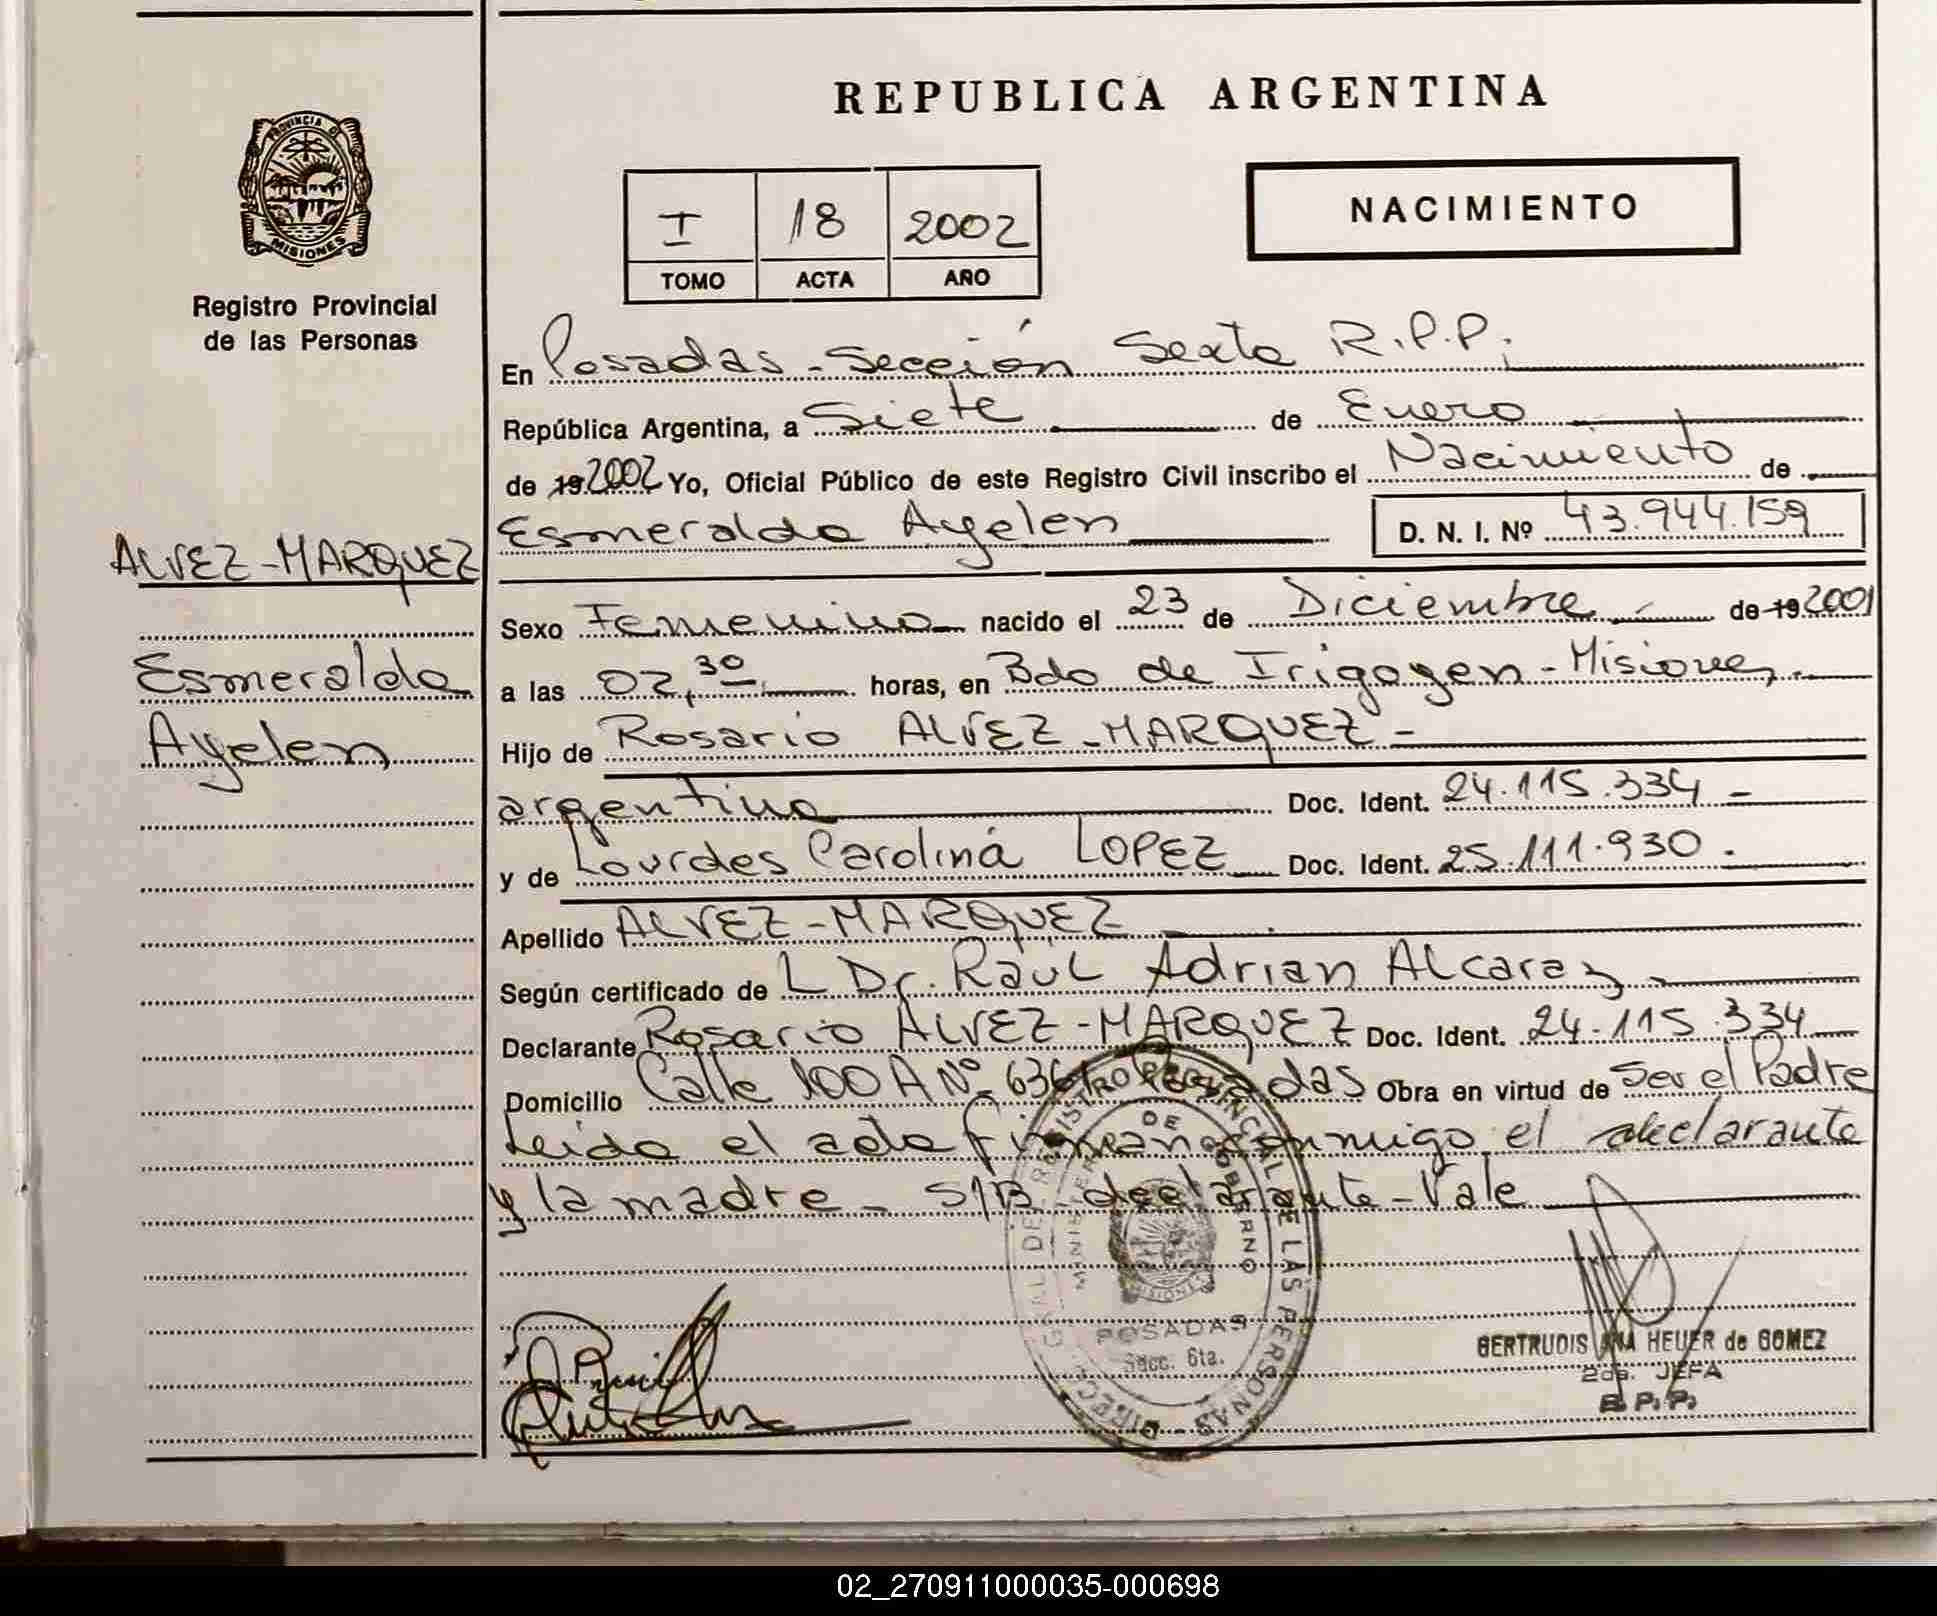 REPUBLICA ARGENTINA
PROVINCIA D
MISIONES
Registro Provincial
de las Personas
I 18 2002
TOMO ACTA AÑO
NACIMIENTO
En Posadas - Sección Sexta R.P.P.
República Argentina, a Siete de Enero
de 19 2002 Yo, Oficial Público de este Registro Civil inscribo el Nacimiento de
Esmeralda Ayelen D. N. I. Nº 43.944.159
ALVEZ-MARQUEZ
Esmeralda
Ayelen
Sexo Femenino nacido el 23 de Diciembre de 19 2001
a las 02,30 horas, en Bdo de Irigoyen - Misiones
Hijo de Rosario ALVEZ-MARQUEZ -
argentino Doc. Ident. 24.115.334 -
y de Lourdes Carolina LOPEZ Doc. Ident. 25.111.930.
Apellido ALVEZ-MARQUEZ
Según certificado de L Dr. Raul Adrian Alcaraz
Declarante Rosario ALVEZ-MARQUEZ Doc. Ident. 24.115.334
Domicilio Calle 100 A Nº Posadas Obra en virtud de Ser el Padre
Leida el acta firman conmigo el declarante
y la madre - S/B declarante - Vale
DIRECC. GRAL DEL REGISTRO PROVINCIAL DE LAS PERSONAS
MINISTERIO DE GOBIERNO
MISIONES
POSADAS
Secc. 6ta.
GERTRUDIS ANA HEUER de GOMEZ
2da. JEFA
R.P.P.
02_270911000035-000698